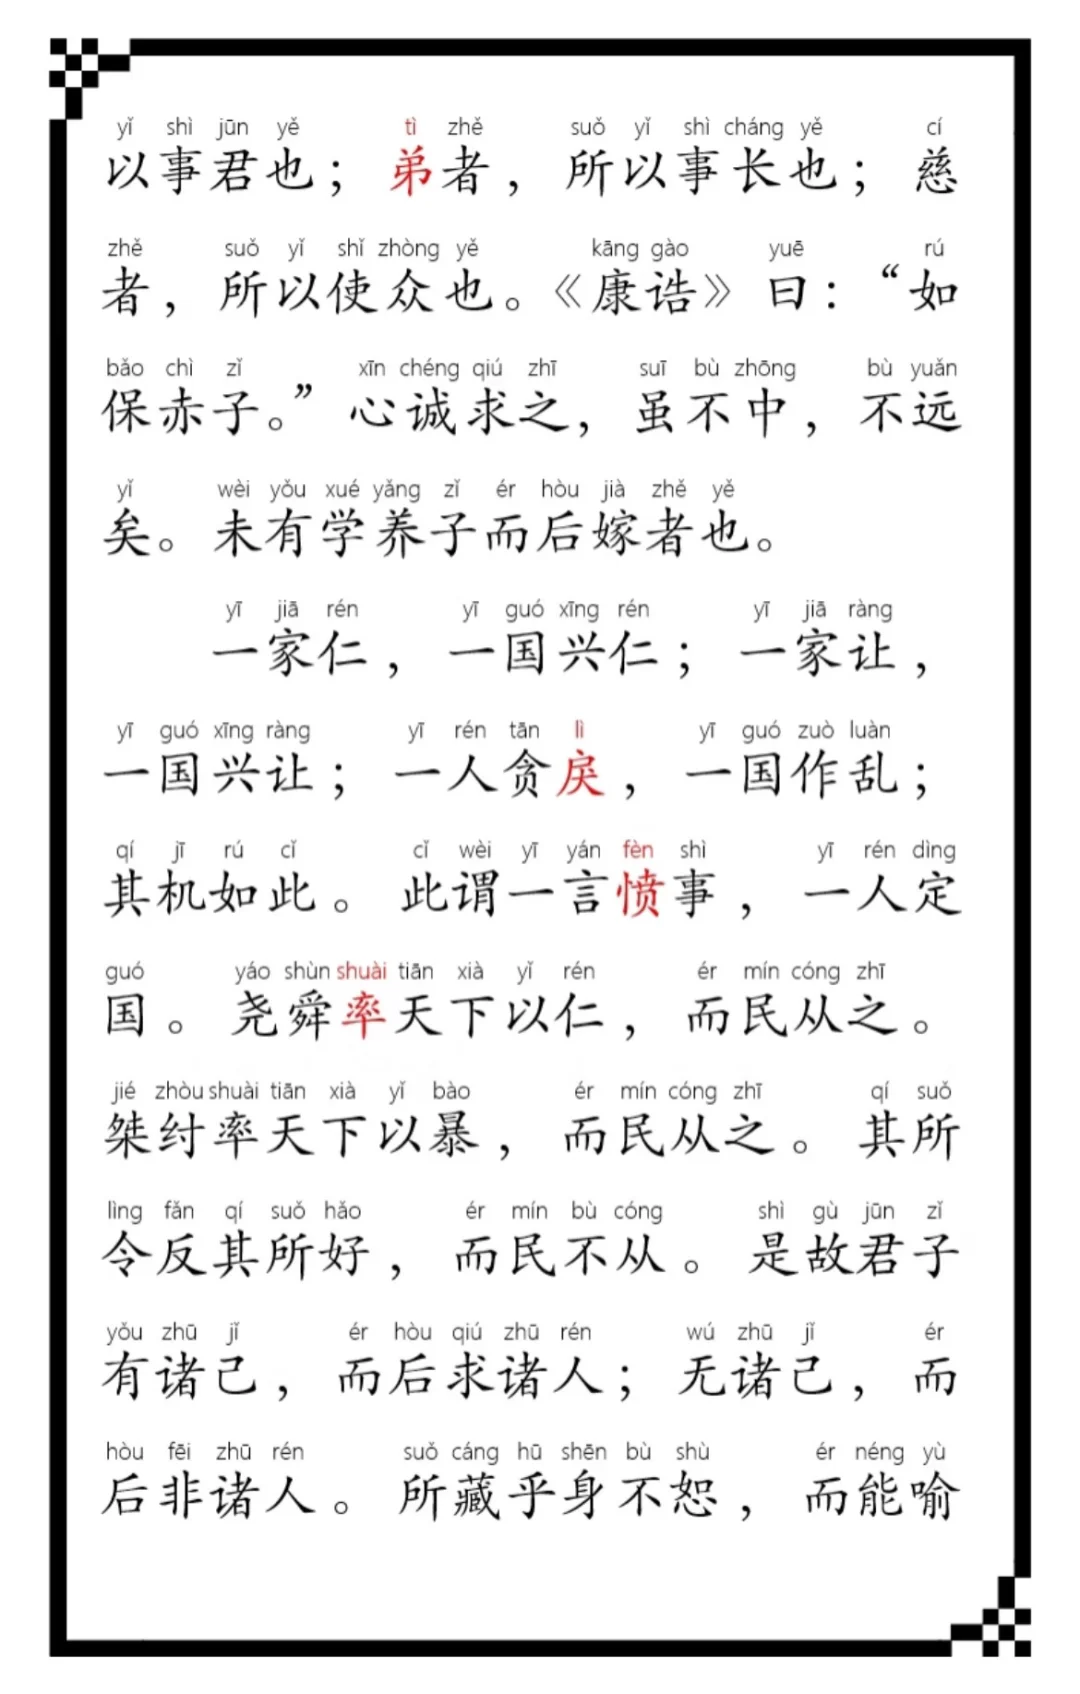 yǐ shì jūn yě tì zhě suǒ yǐ shì cháng yě cí
以事君也；弟者，所以事长也；慈
zhě suǒ yǐ shǐ zhòng yě kāng gào yuē rú
者，所以使众也。《康诰》曰：“如
bǎo chì zǐ xīn chéng qiú zhī suī bù zhōng bù yuǎn
保赤子。”心诚求之，虽不中，不远
yǐ wèi yǒu xué yǎng zǐ ér hòu jià zhě yě
矣。未有学养子而后嫁者也。
yī jiā rén yī guó xīng rén yī jiā ràng
一家仁，一国兴仁；一家让，
yī guó xīng ràng yī rén tān lì yī guó zuò luàn
一国兴让；一人贪戾，一国作乱；
qí jī rú cǐ cǐ wèi yī yán fèn shì yī rén dìng
其机如此。此谓一言愤事，一人定
guó yáo shùn shuài tiān xià yǐ rén ér mín cóng zhī
国。尧舜率天下以仁，而民从之。
jié zhòu shuài tiān xià yǐ bào ér mín cóng zhī qí suǒ
桀纣率天下以暴，而民从之。其所
lìng fǎn qí suǒ hǎo ér mín bù cóng shì gù jūn zǐ
令反其所好，而民不从。是故君子
yǒu zhū jǐ ér hòu qiú zhū rén wú zhū jǐ ér
有诸己，而后求诸人；无诸己，而
hòu fēi zhū rén suǒ cáng hū shēn bù shù ér néng yù
后非诸人。所藏乎身不恕，而能喻